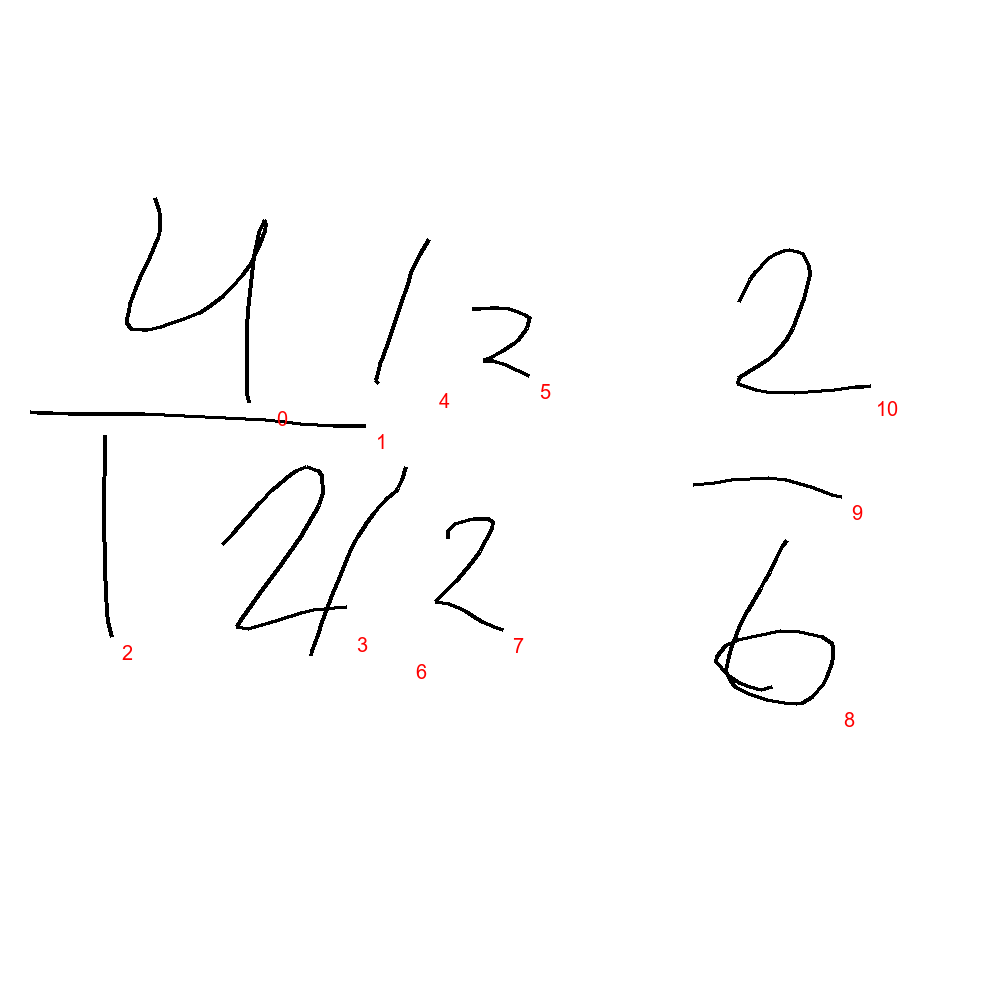 4/2 2
12/2 6
0
1
2
3
4
5
6
7
8
9
10